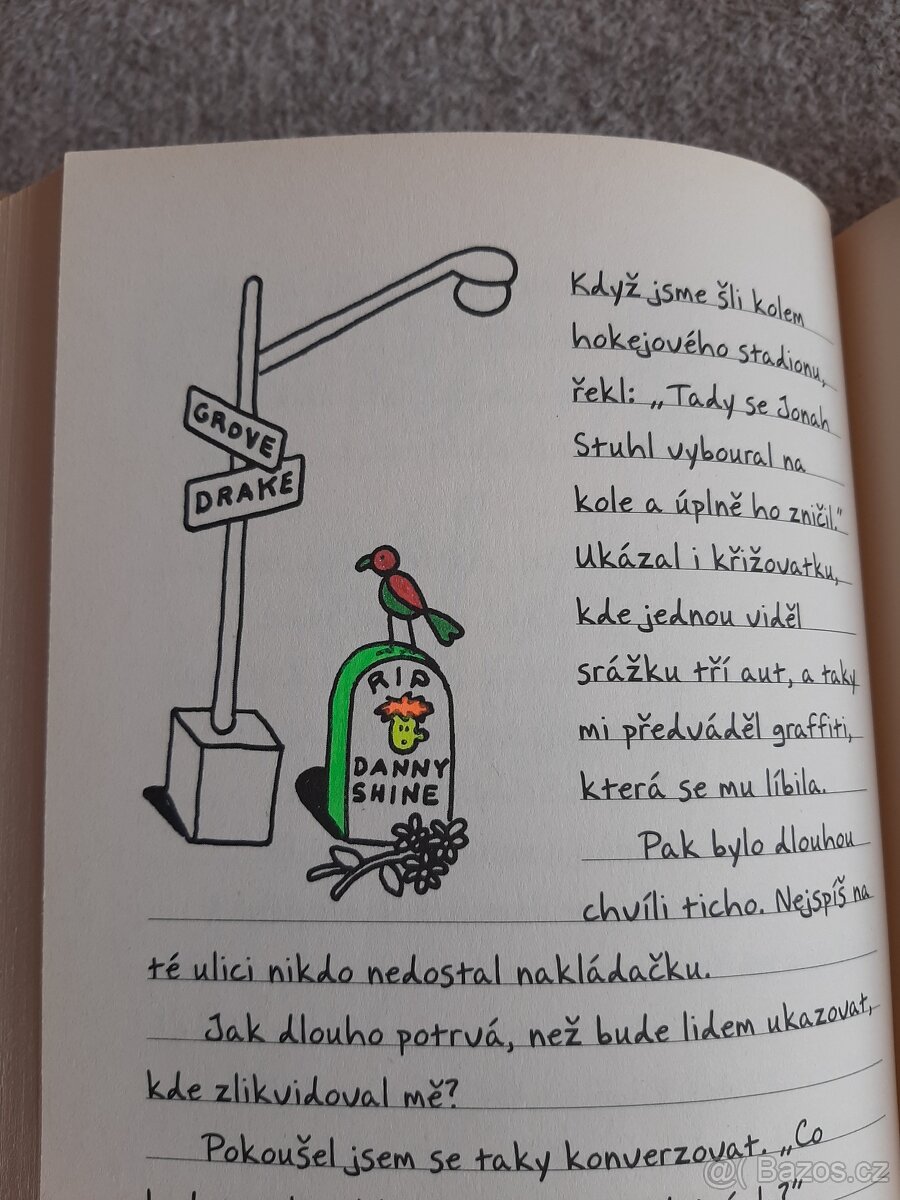 GROVE
DRAKE
RIP
DANNY
SHINE
Když jsme šli kolem
hokejového stadionu,
řekl: „Tady se Jonah
Stuhl vyboural na
kole a úplně ho zničil."
Ukázal i křižovatku,
kde jednou viděl
srážku tří aut, a taky
mi předváděl graffiti,
která se mu líbila.
Pak bylo dlouhou
chvíli ticho. Nejspíš na
té ulici nikdo nedostal nakládačku.
Jak dlouho potrvá, než bude lidem ukazovat,
kde zlikvidoval mě?
Pokoušel jsem se taky konverzovat. „Co
Bazos.cz